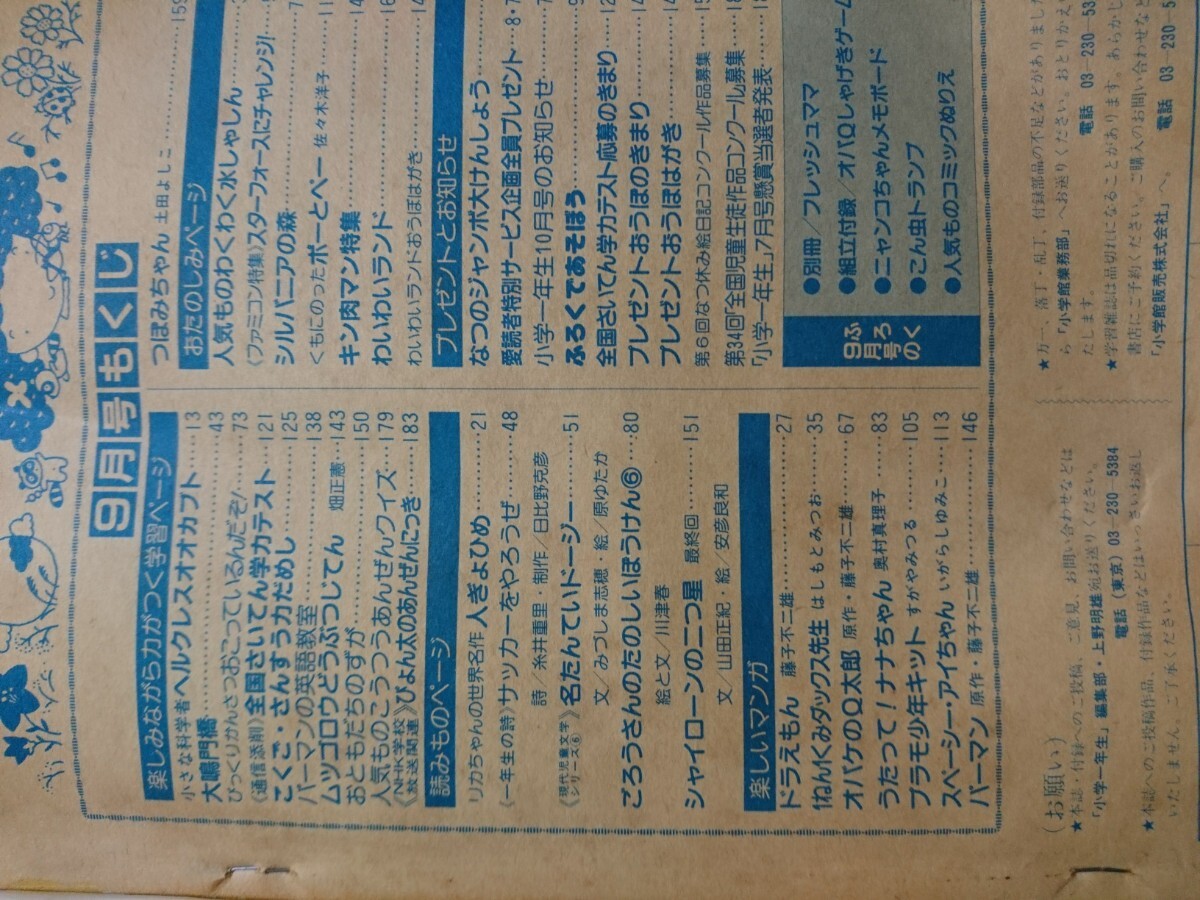 9月号もくじ
楽しみながら力がつく学習ページ
小さな科学者ヘルクレスオオカブト…13
大鳴門橋…43
びっくりかんさつおこっているんだぞ!…73
《通信添削》全国さいてん学力テスト…121
こくご・さんすう力だめし…125
パーマンの英語教室…138
ムツゴロウどうぶつじてん 畑正憲…143
おともだちのずが…150
人気ものこうつうあんぜんクイズ…179
《NHK学校放送関連》ひょん太のあんぜんにっき…183
読みものページ
リカちゃんの世界名作 人ぎょひめ…21
《一年生の詩》サッカーをやろうぜ…48
詩/糸井重里・制作/日比野克彦
《現代児童文学シリーズ⑥》名たんていドージー…51
文/みづしま志穂 絵/原ゆたか
ごろうさんのたのしいぼうけん⑥…80
絵と文/川津春
シャイローンの二つ星 最終回…151
文/山田正紀・絵/安彦良和
楽しいマンガ
ドラえもん 藤子不二雄…27
1ねんくみタックス先生 はしもとみつお…35
オバケのQ太郎 原作・藤子不二雄…67
うたって!ナナちゃん 奥村真理子…83
プラモ少年キット すがやみつる…105
スペーシー・アイちゃん いがらしゆみこ…113
パーマン 原作・藤子不二雄…146
つぼみちゃん 土田よしこ…159
おたのしみページ
人気ものわくわく水しゃしん
《ファミコン特集》スターフォースにチャレンジ!
シルバニアの森
くもにのったポーとペー 佐々木洋子
キン肉マン特集
わいわいランド
わいわいランドおうぼはがき
プレゼントとお知らせ
なつのジャンボ大けんしょう
愛読者特別サービス企画全員プレゼント
小学一年生10月号のお知らせ
ふろくであそぼう
全国さいてん学力テスト応募のきまり
プレゼントおうぼのきまり
プレゼントおうぼはがき
第6回なつ休み絵日記コンクール作品募集
第34回「全国児童生徒作品コンクール」募集
「小学一年生」7月号懸賞当選者発表
9月号のふろく
●別冊/フレッシュママ
●組立付録/オバQしゃげきゲーム
●ニャンコちゃんメモボード
●こん虫トランプ
●人気ものコミックぬりえ
(お願い)
★本誌・付録へのご投稿、ご意見、お問い合わせなどは
「小学一年生」編集部・上野明雄宛お送りください。
電話(東京)03-230-5384
★本誌へのご投稿作品、付録作品などはいっさいお返し
いたしません。ご了承ください。
★万一、落丁・乱丁、付録部品の不足などがありました
ら「小学館業務部」へお送りください。おとりかえ
たします。 電話 03-230-53
★学習雑誌は品切れになることがあります。あらかじ
書店にご予約ください。ご購入のお問い合わせなど
「小学館販売株式会社」へ。 電話 03-230-5